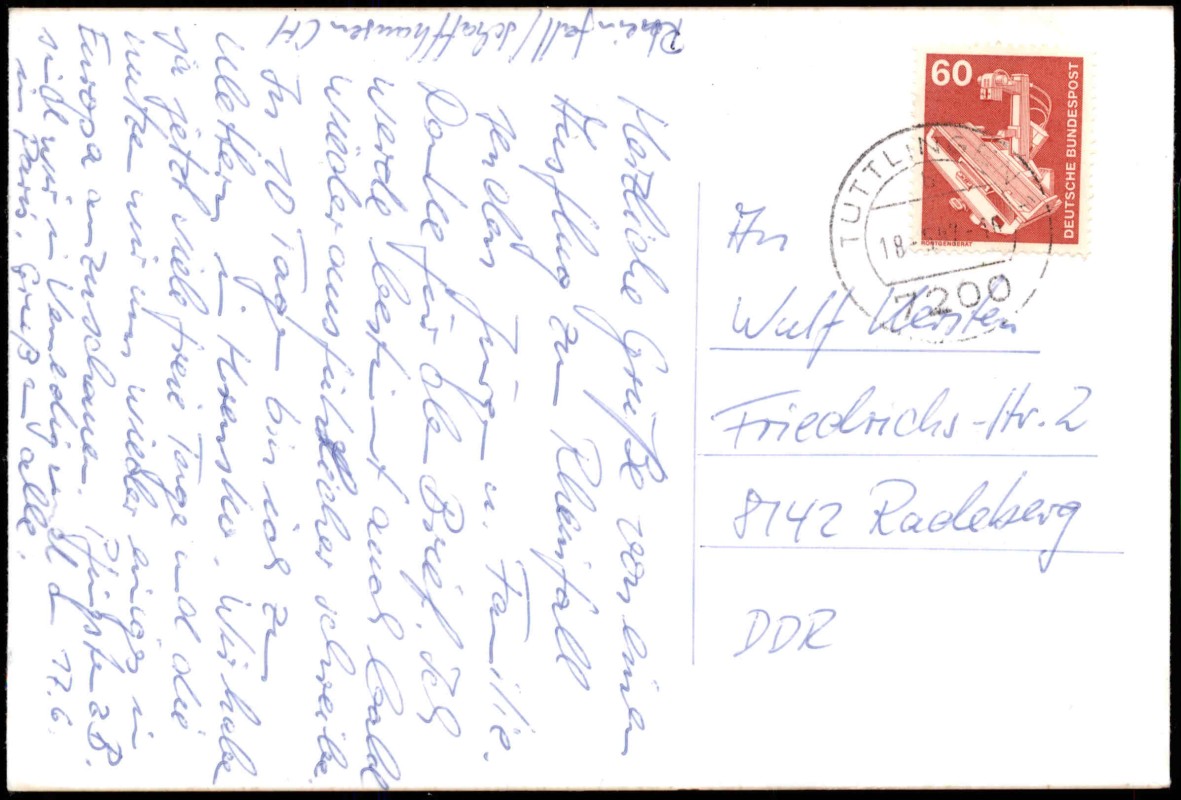 Rheinfall/Schaffhausen CH
Herzliche Grüße von einem
Ausflug zum Rheinfall
senden Jürgen u. Familie.
Danke für den Brief. Ich
werde bestimmt auch bald
wieder ausführlicher schreiben.
In 10 Tagen bin ich zu
in Wir habe
ja jetzt viele freie Tage und die
nutzen wir um wieder einiges in
Europa anzuschauen. Pfingsten z.B.
sind wir in Venedig und am 17.6.
in Paris. Gruß an alle.
60
DEUTSCHE BUNDESPOST
RÖNTGENGERÄT
TUTTLINGEN
7200
An
Wulf Kersten
Friedrichs-Str. 2
8142 Radeberg
DDR